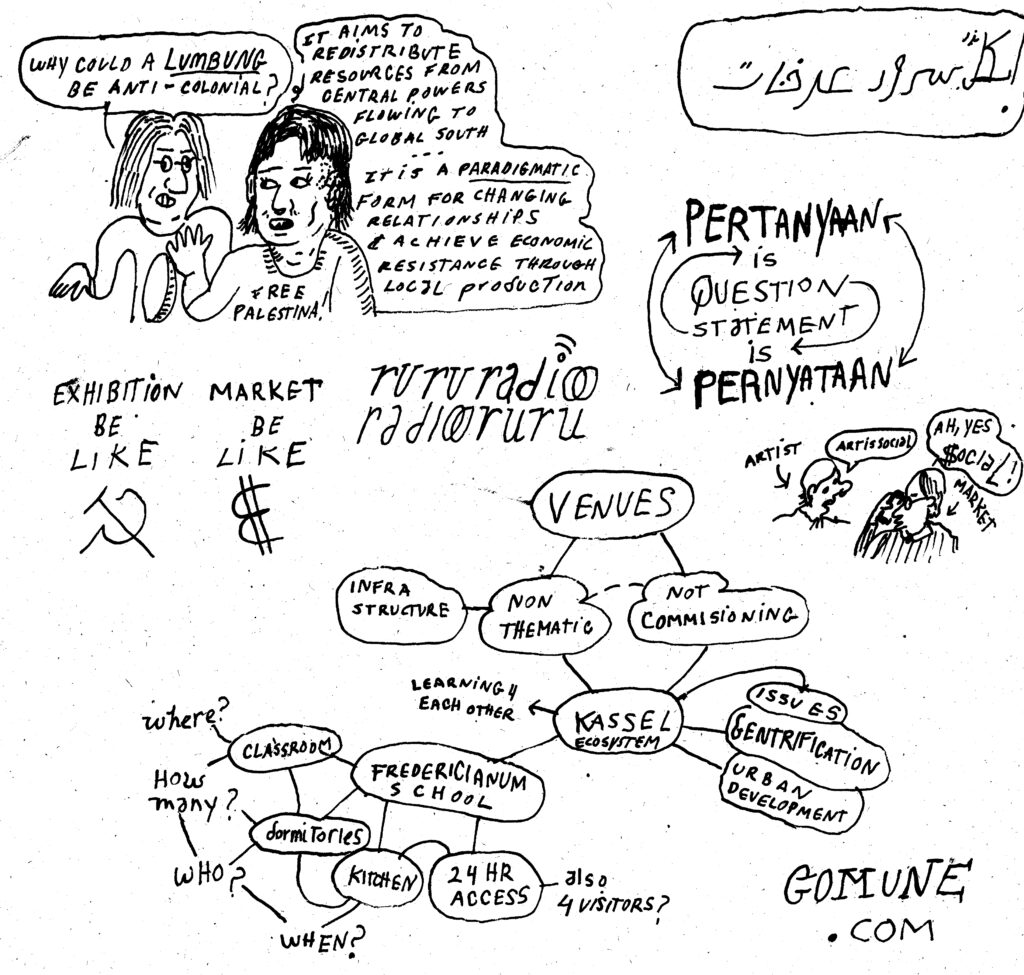 WHY COULD A LUMBUNG
BE ANTI-COLONIAL?
IT AIMS TO
REDISTRIBUTE
RESOURCES FROM
CENTRAL POWERS
FLOWING TO
GLOBAL SOUTH
...
It is A PARADIGMATIC
FORM FOR CHANGING
RELATIONSHIPS
& ACHIEVE ECONOMIC
RESISTANCE THROUGH
LOCAL production
FREE
PALESTINA!
PERTANYAAN
is
QUESTION
STATEMENT
is
PERNYATAAN
EXHIBITION
BE
LIKE
MARKET
BE
LIKE
$
rururadioo
radiooruru
ARTIST
ART IS SOCIAL
AH, YES
$OCIAL!!
MARKET
VENUES
INFRA
STRUCTURE
NON
THEMATIC
NOT
COMMISIONING
LEARNING 4
EACH OTHER
KASSEL
ECOSYSTEM
ISSUES
GENTRIFICATION
URBAN
DEVELOPMENT
where?
CLASSROOM
FREDERICIANUM
SCHOOL
HOW
many?
dormitories
WHO?
KITCHEN
24 HR
ACCESS
also
4 VISITORS?
WHEN?
GOMUNE
.COM